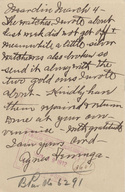 Mandan March 4 -
The watches I wrote about
last week did not get off &
meanwhile a little silver
watch was also broken so
send it along with the
two gold ones I wrote
about - Kindly have
them repaired & return
same at your con-
venience - with gratitude
I am your ord
B
6291